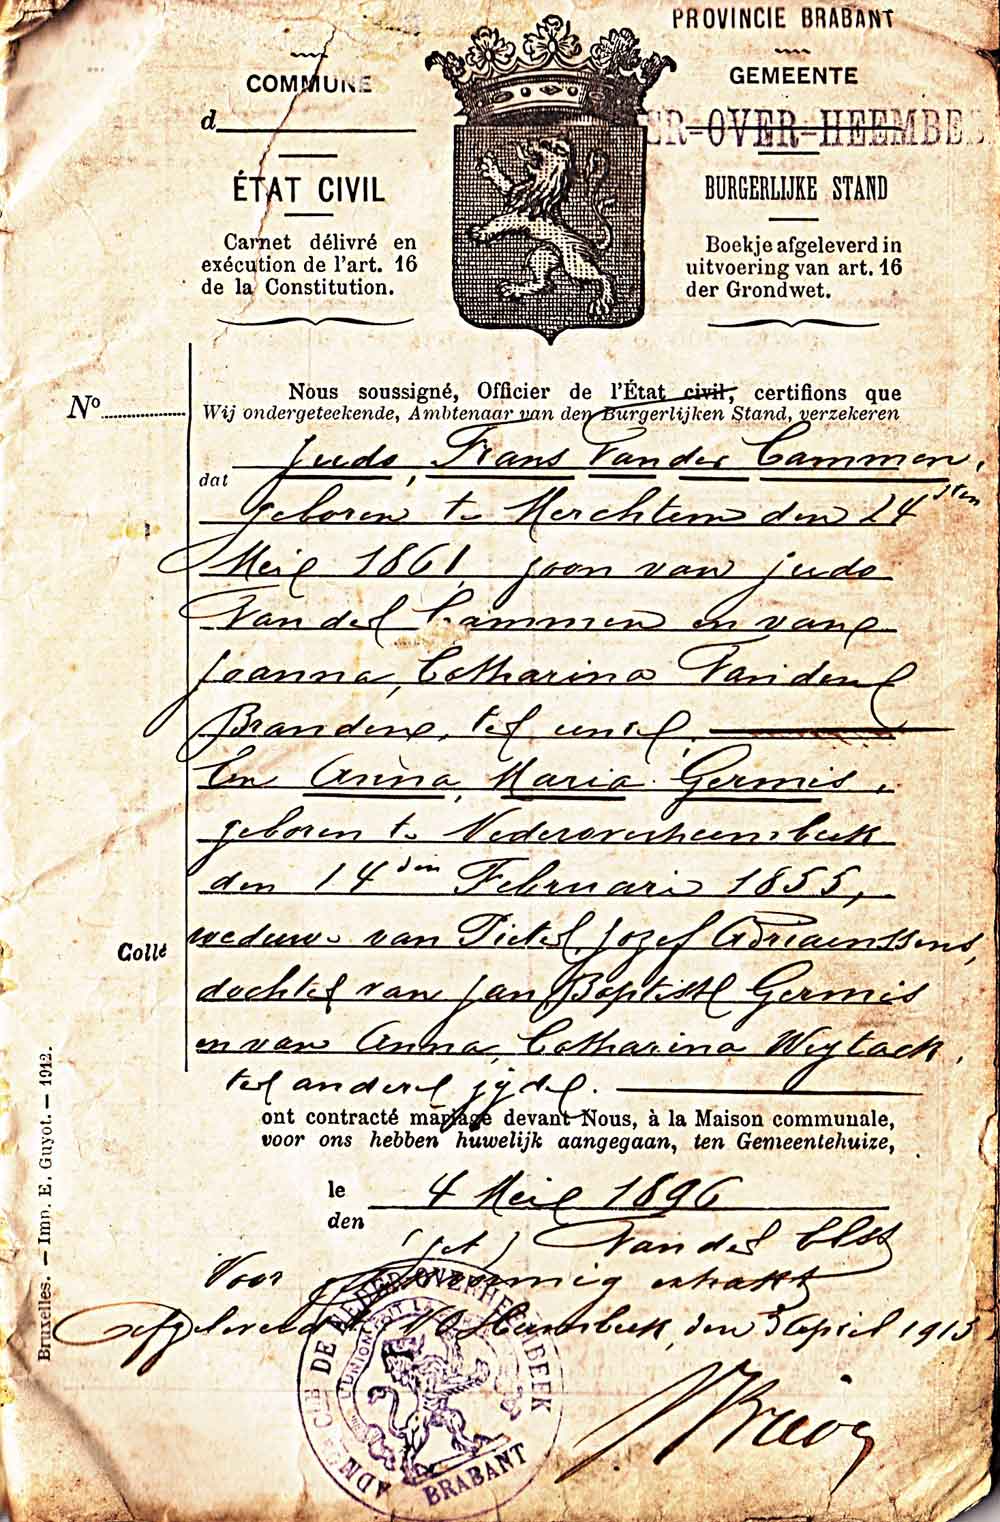 PROVINCIE BRABANT
COMMUNE
d
GEMEENTE
ER-OVER-HEEMBE
ÉTAT CIVIL
BURGERLIJKE STAND
Carnet délivré en
exécution de l'art. 16
de la Constitution.
Boekje afgeleverd in
uitvoering van art. 16
der Grondwet.
Nº
Nous soussigné, Officier de l'État civil, certifions que
Wij ondergeteekende, Ambtenaar van den Burgerlijken Stand, verzekeren
dat Judo, Frans Vander Cammen,
geboren te Merchtem den 24sten
Mei 1861, zoon van Judo
Vander Cammen en van
Joanna, Catharina Vanden
Branden, ter eenre,
En Anna, Maria Germis,
geboren te Nederoverheembeek
den 14den Februari 1855,
weduwe van Pieter Jozef Adriaenssens,
Collé
dochter van Jan Baptist Germis
en van Anna, Catharina Weytack,
ter andere zyde.
ont contracté mariage devant Nous, à la Maison communale,
voor ons hebben huwelijk aangegaan, ten Gemeentehuize,
le
den
4 Mei 1896
(get) Vander Elst
Voor eensluidend extrakt
Afgeleverd te N O Heembeek, den 3 April 1913
ADMtie CLE DE NEDEROVERHEEMBEEK
L'UNION FAIT LA FORCE
BRABANT
Bruxelles. — Imp. E. Guyot. — 1912.